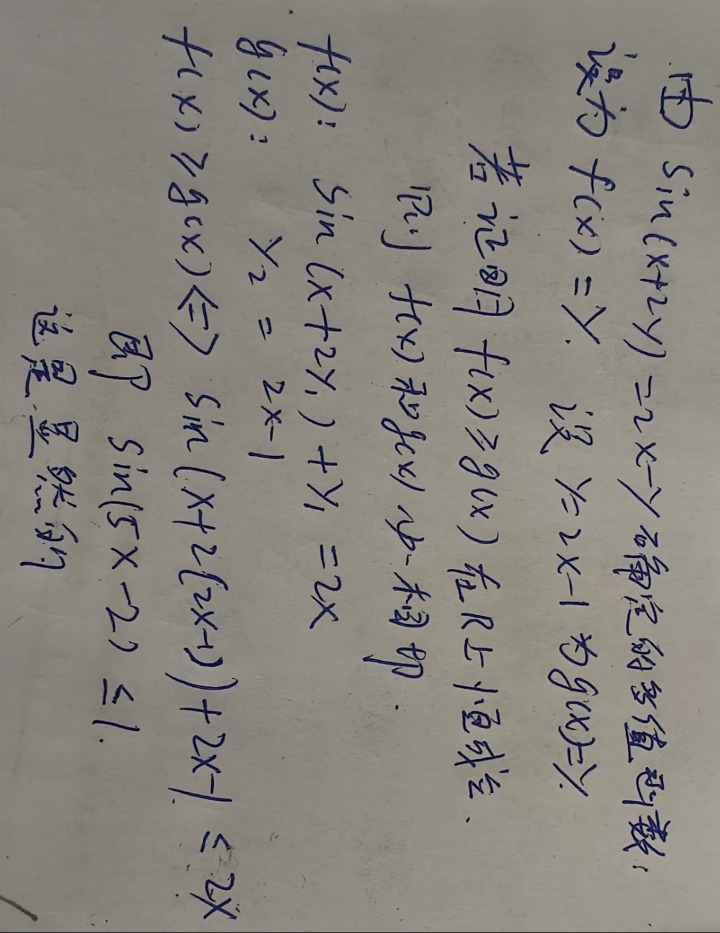 由 sin(x+2y)=2x-y 确定的多值函数,
设为 f(x)=y. 设 y=2x-1 为g(x)=y.
若证明 f(x)≥g(x) 在R上恒成立.
则 f(x) 和g(x) 必相切.
f(x): sin(x+2y₁)+y₁=2x
g(x): y₂=2x-1
f(x)≥g(x)⇔ sin(x+2(2x-1))+2x-1≤2x
即 sin(5x-2)≤1.
这是显然的